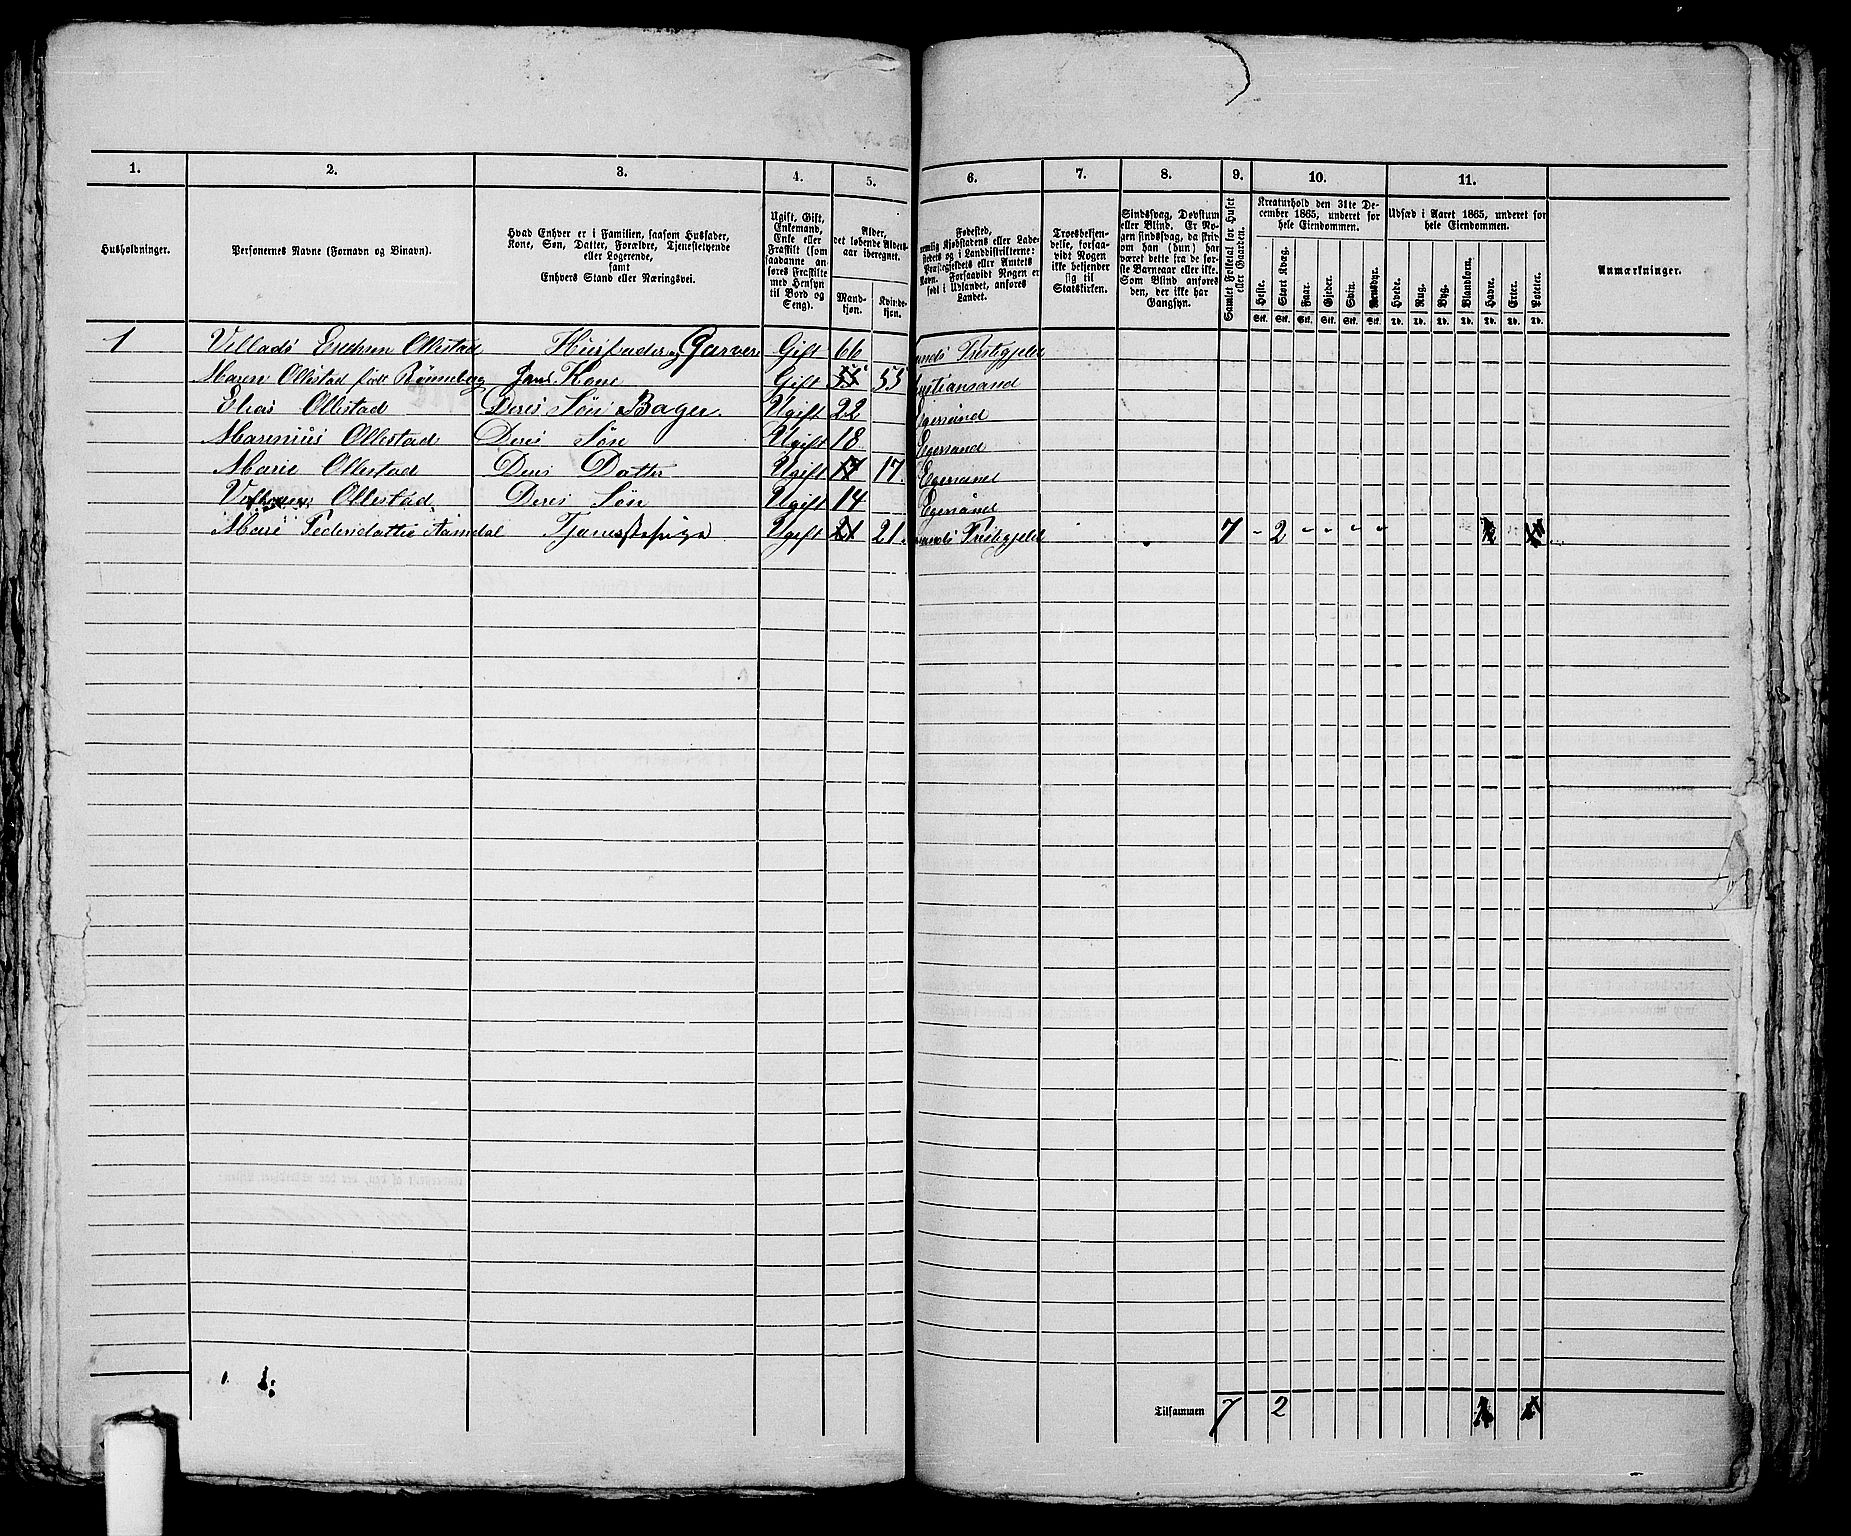 1. 2. 3. 4. 5. 6. 7. 8. 9. 10. 11.
Husholdninger.
Personernes Navne (Fornavn og Binavn).
Hvad Enhver er i Familien, saasom Husfader,
Kone, Søn, Datter, Forældre, Tjenestetyende
eller Logerende,
samt
Enhvers Stand eller Næringsvei.
Ugift, Gift,
Enkemand,
Enke eller
Fraskilt (som
saadanne an-
føres Fraskilte
med Hensyn
til Bord og
Seng).
Alder,
det løbende Alders-
aar iberegnet.
Mand-
kjøn.
Kvinde-
kjøn.
Fødested,
nemlig Kjøbstadens eller Lade-
stedets og i Landdistrikterne:
Præstegjeldets eller Amtets
Navn. Forsaavidt Nogen er
født i Udlandet, anføres
Landet.
Troesbekjen-
delse, forsaa-
vidt Nogen
ikke bekjender
sig til
Statskirken.
Sindssvag, Døvstum
eller Blind. Er No-
gen sindssvag, da skriv
om han (hun) har
været dette fra de før-
ste Barneaar eller ikke.
Som Blind anføres
den, der ikke har
Gangsyn.
Samlet Folketal for Huset
eller Gaarden.
Kreaturhold den 31te De-
cember 1865, underet for
hele Eiendommen.
Heste. Stort Kvæg. Faar. Gjeder. Svin. Rensdyr.
Stk. Stk. Stk. Stk. Stk. Stk.
Udsæd i Aaret 1865, underet for
hele Eiendommen.
Hvede. Rug. Byg. Blandkorn. Havre. Erter. Poteter.
Td. Td. Td. Td. Td. Td. Td.
Anmærkninger.
1 Villads Ericksen Ollestad Huusfader og Garver Gift 66 unds Prestegjeld
Maren Ollestad født Rønneberg Hans Kone Gift 55 55 istiansand
Elias Ollestad Deres Søn Bager Ugift 22 Egersund
Marenius Ollestad Deres Søn Ugift 18 Egersund
Marie Ollestad Deres Datter Ugift 17 17. Egersund
Ollestad Deres Søn Ugift 14 Egersund
Marie Pedersdatter Aamdal Tjenestepige Ugift 21 21. unds Prestegjeld 7 - 2 - - - -
Tilsammen 7 2